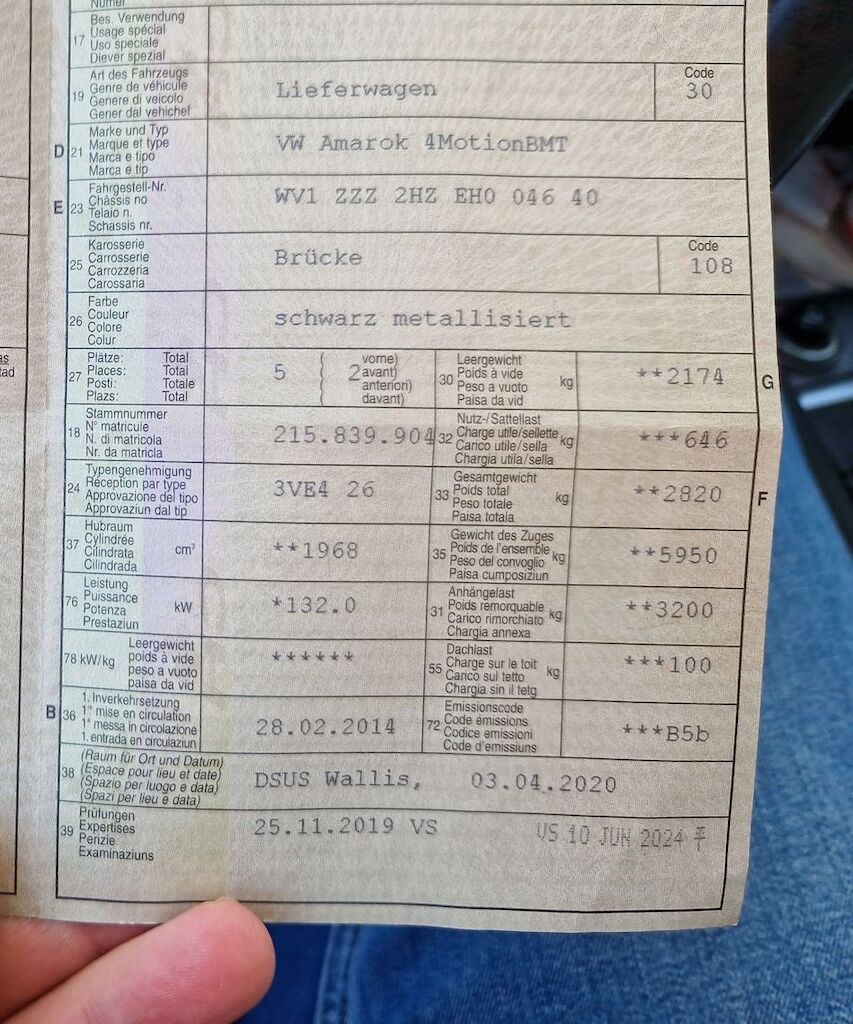 Numer
17 Bes. Verwendung
Usage spécial
Uso speciale
Diever spezial
19 Art des Fahrzeugs
Genre de véhicule
Genere di veicolo
Gener dal vehichel
Lieferwagen
Code
30
D 21 Marke und Typ
Marque et type
Marca e tipo
Marca e tip
VW Amarok 4MotionBMT
E 23 Fahrgestell-Nr.
Châssis no
Telaio n.
Schassis nr.
WV1 ZZZ 2HZ EH0 046 40
25 Karosserie
Carrosserie
Carrozzeria
Carossaria
Brücke
Code
108
26 Farbe
Couleur
Colore
Colur
schwarz metallisiert
27 Plätze: Total
Places: Total
Posti: Totale
Plazs: Total
5 ( 2 vorne)
( avant)
( anteriori)
( davant)
30 Leergewicht
Poids à vide
Peso a vuoto
Paisa da vid
kg
**2174
G
18 Stammnummer
N° matricule
N. di matricola
Nr. da matricla
215.839.904
32 Nutz-/Sattellast
Charge utile/sellette
Carico utile/sella
Chargia utila/sella
kg
***646
24 Typengenehmigung
Réception par type
Approvazione del tipo
Approvaziun dal tip
3VE4 26
33 Gesamtgewicht
Poids total
Peso totale
Paisa totala
kg
**2820
F
37 Hubraum
Cylindrée
Cilindrata
Cilindrada
cm³
**1968
35 Gewicht des Zuges
Poids de l'ensemble
Peso del convoglio
Paisa cumposiziun
kg
**5950
76 Leistung
Puissance
Potenza
Prestaziun
kW
*132.0
31 Anhängelast
Poids remorquable
Carico rimorchiato
Chargia annexa
kg
**3200
78 kW/kg Leergewicht
poids à vide
peso a vuoto
paisa da vid
******
55 Dachlast
Charge sur le toit
Carico sul tetto
Chargia sin il tetg
kg
***100
B 36 1. Inverkehrsetzung
1re mise en circulation
1a messa in circolazione
1. entrada en circulaziun
28.02.2014
72 Emissionscode
Code émissions
Codice emissioni
Code d'emissiuns
***B5b
38 (Raum für Ort und Datum)
(Espace pour lieu et date)
(Spazio per luogo e data)
(Spazi per lieu e data)
DSUS Wallis, 03.04.2020
39 Prüfungen
Expertises
Perizie
Examinaziuns
25.11.2019 VS
VS 10 JUN 2024